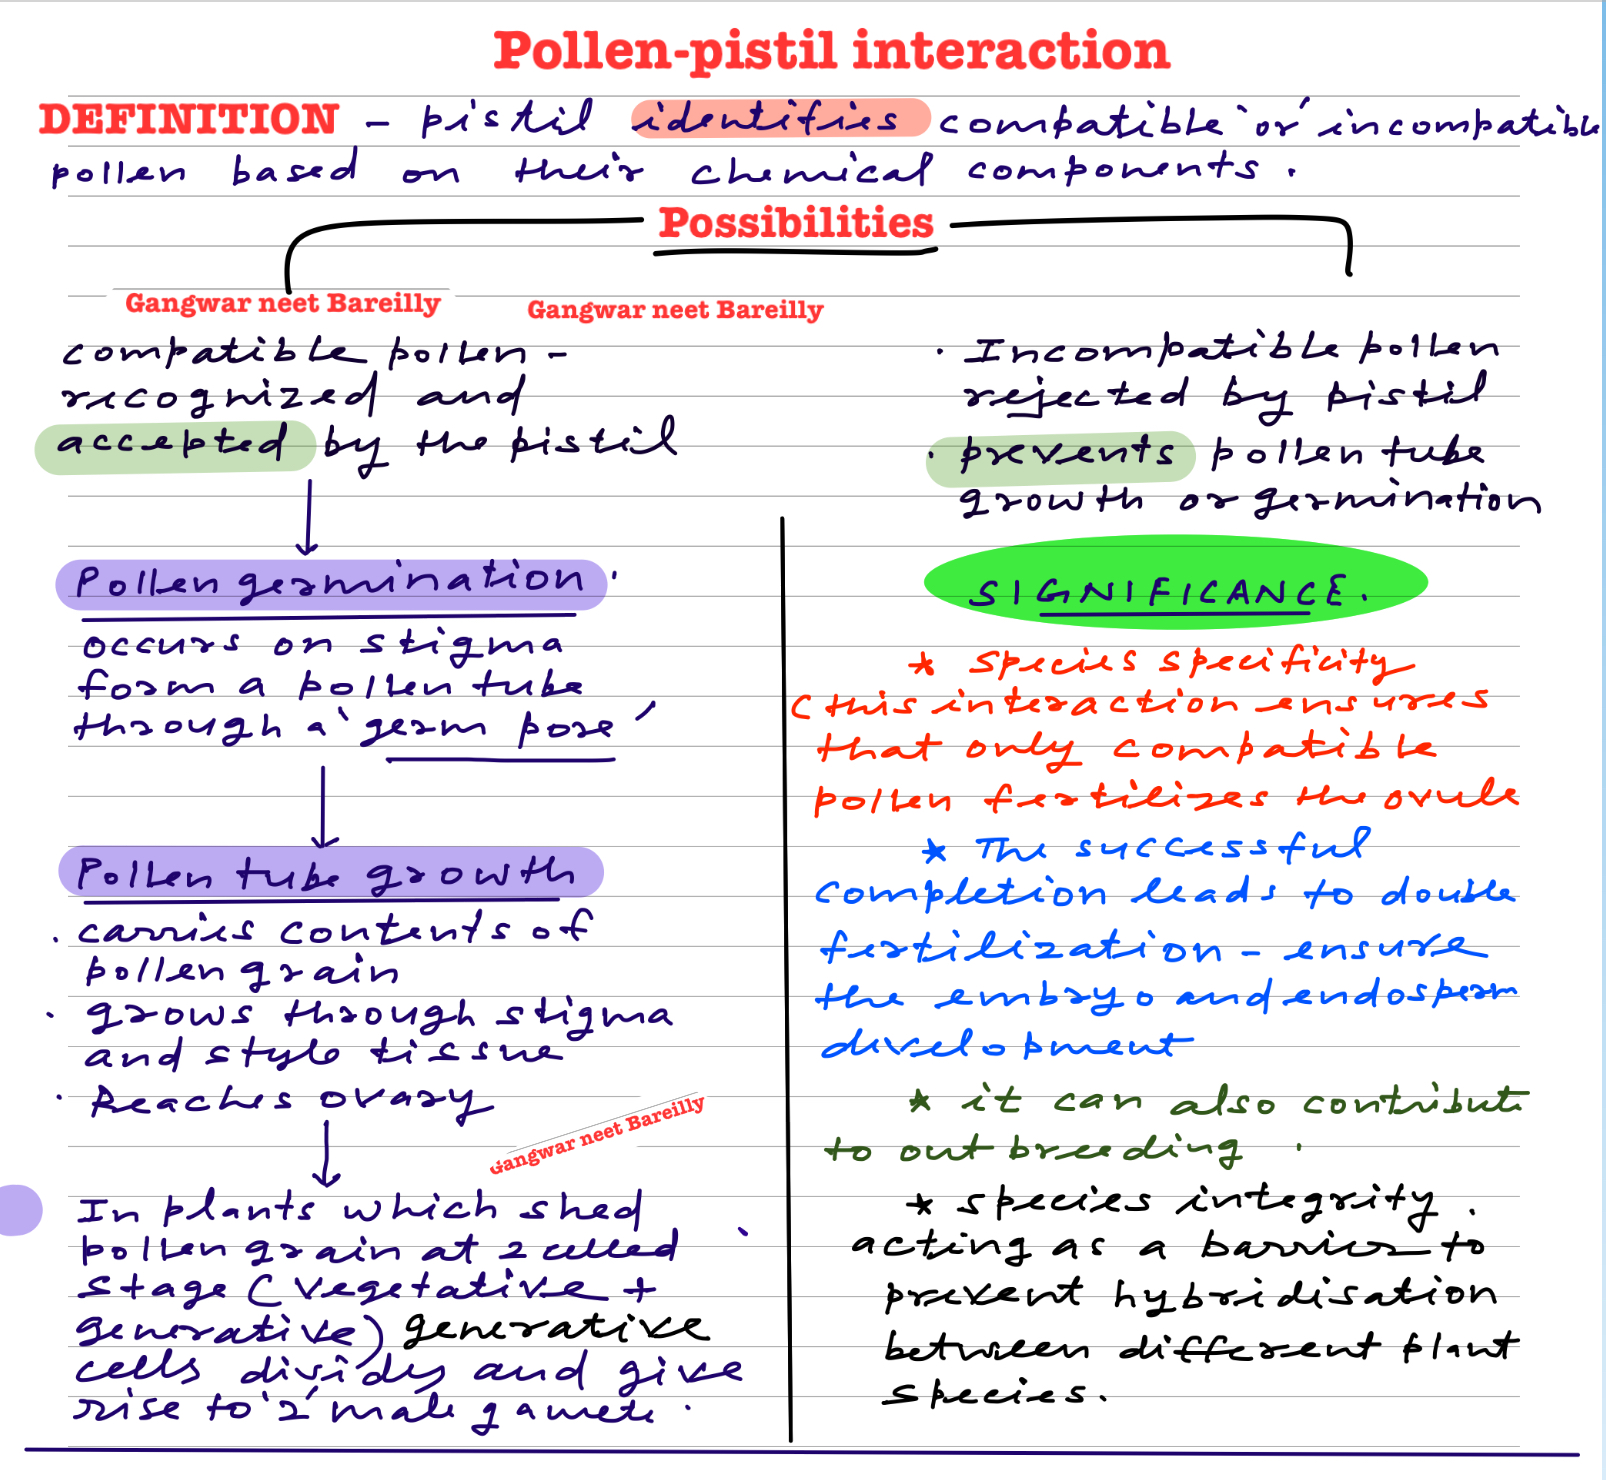 Pollen-pistil interaction
DEFINITION - pistil identifies compatible 'or' incompatible
pollen based on their chemical components.
Possibilities
Gangwar neet Bareilly
Gangwar neet Bareilly
compatible pollen -
recognized and
accepted by the pistil
Pollen germination.
occurs on stigma
form a pollen tube
through a 'germ pore'
Pollen tube growth
. carries contents of
pollen grain
. grows through stigma
and style tissue
. Reaches ovary
Gangwar neet Bareilly
In plants which shed
pollen grain at 2 celled
stage (vegetative +
generative) generative
cells divides and give
rise to '2' male gamete.
. Incompatible pollen
rejected by pistil
. prevents pollen tube
growth or germination
SIGNIFICANCE.
* species specificity
(this interaction ensures
that only compatible
pollen fertilizes the ovule
* The successful
completion leads to double
fertilization - ensure
the embryo and endosperm
divelopment
* it can also contribute
to out breeding.
* species integrity.
acting as a barrier to
prevent hybridisation
between different plant
species.